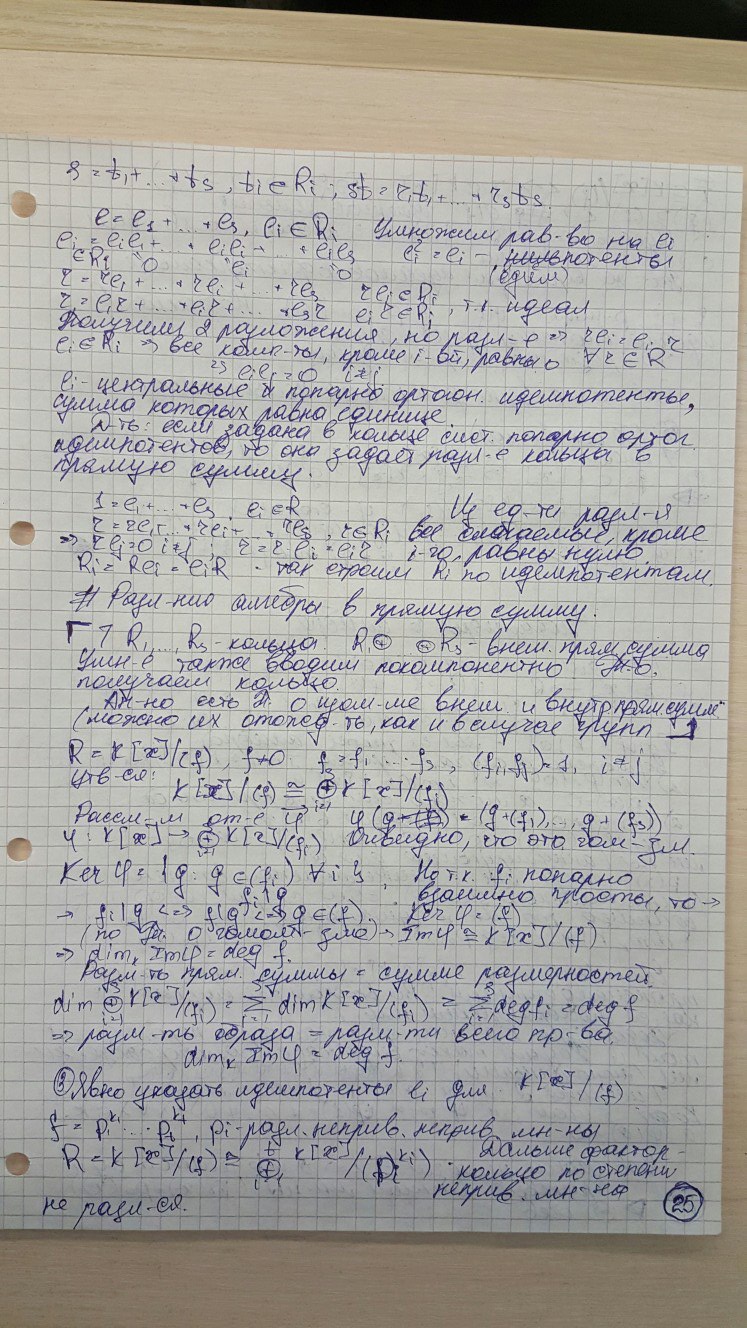 s = t₁+...+tₛ, tᵢ ∈ Rᵢ; st = r₁t₁+...+rₛtₛ.
e = e₁+...+eₛ, eᵢ ∈ Rᵢ Умножим рав-во на eᵢ
eᵢ = eᵢe₁+...+eᵢeᵢ+...+eᵢeₛ eᵢ² = eᵢ - потенты
∈Rᵢ 0 eᵢ 0 (идем)
r = re₁+...+reᵢ+...+reₛ reᵢ ∈ Rᵢ
r = e₁r+...+eᵢr+...+eₛr eᵢr ∈ Rᵢ, т.к. идеал
Получили 2 разложения, но разл-е ⇒ reᵢ = eᵢr
eᵢ ∈ Rᵢ ⇒ все комп-ты, кроме i-ой, равны 0 ∀r ∈ R
⇒ eᵢeⱼ = 0 i≠j
eᵢ - центральные и попарно ортогон. идемпотенты,
сумма которых равна единице.
если задана в кольце сист. попарно ортог.
идемпотентов, то она задает разл-е кольца в
прямую сумму.
1 = e₁+...+eₛ, eᵢ ∈ R Из ед-ти разл-я
r = re₁+...+reᵢ+...+reₛ, r ∈ Rᵢ все слагаемые, кроме
⇒ reⱼ = 0 i≠j, r = reᵢ = eᵢr i-го, равны нулю.
Rᵢ = Reᵢ = eᵢR - так строим Rᵢ по идемпотентам.
Разл-ние алгебры в прямую сумму.
R₁,...,Rₛ - кольца. R₁⊕...⊕Rₛ - внеш. прям. сумма
Умн-е также вводим покомпонентно
получаем кольцо.
Ан-но есть о изом-ме внеш. и внутр. прям. сумм
(можно их отожд-ть, как и в случае групп
R = K[x]/(f), f≠0 f = f₁·...·fₛ, (fᵢ,fⱼ)=1, i≠j
Утв-ся: K[x]/(f) ≅ ⊕ᵢ₌₁ˢ K[x]/(fᵢ)
Рассм-м от-е φ φ(g) = (g+(f₁),..., g+(fₛ))
φ: K[x] → ⊕ᵢ₌₁ˢ K[x]/(fᵢ) Очевидно, что это гом-зм.
Ker φ = {g: g ∈ (fᵢ) ∀i}. Но т.к. fᵢ попарно
fᵢ|g взаимно просты, то →
→ fᵢ|g <=> f|g <=> g ∈ (f). Ker φ = (f)
(по о гомоморф-зме) → Im φ ≅ K[x]/(f)
⇒ dimₖ Im φ = deg f.
Разм-ть прям. суммы = сумме размерностей
dim ⊕ᵢ₌₁ˢ K[x]/(fᵢ) = Σᵢ₌₁ˢ dim K[x]/(fᵢ) = Σᵢ₌₁ˢ deg fᵢ = deg f
⇒ разм-ть образа = разм-ти всего пр-ва
dimₖ Im φ = deg f.
③ Явно указать идемпотенты eᵢ для K[x]/(f)
f = p₁^k₁·...·pₜ^kₜ, pᵢ - разл. неприв. неприв. мн-ны
R = K[x]/(f) ≅ ⊕ᵢ₌₁ᵗ K[x]/(pᵢ^kᵢ). Дальше фактор-
кольцо по степени
неприв. мн-на
не разл-ся.
25